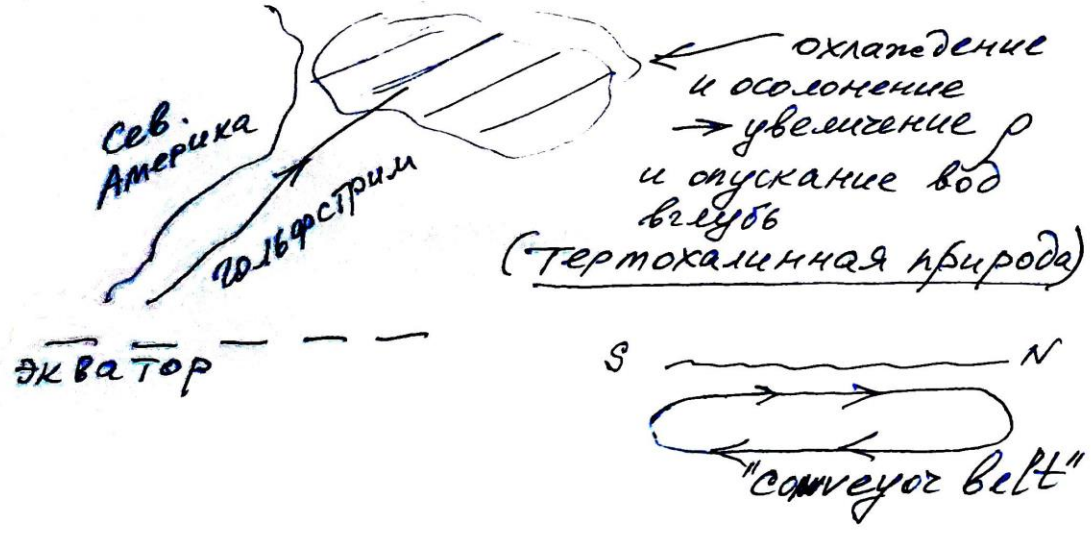 Сев.
Америка
Гольфстрим
экватор
охлаждение
и осолонение
→ увеличение ρ
и опускание вод
вглубь
(термохалинная природа)
S N
"conveyor belt"